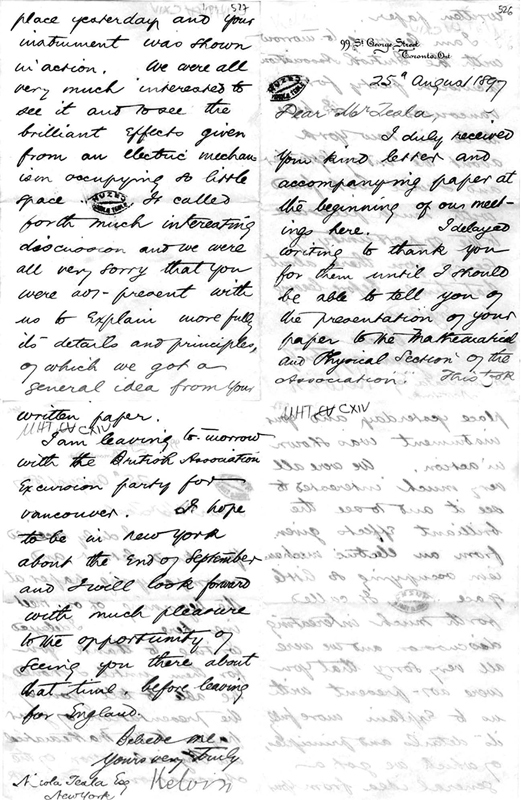 526
99 St George Street
Toronto, Ont
25th August 1897
Dear Mr Tesla
I duly received
your kind letter and
accompanying paper at
the beginning of our meet-
ings here. I delayed
writing to thank you
for them until I should
be able to tell you of
the presentation of your
paper to the Mathematical
and Physical Section of the
Association. This took
527
place yesterday and your
instrument was shown
in action. We were all
very much interested to
see it and to see the
brilliant effects given
from an electric mechan
ism occupying so little
space. It called
forth much interesting
discussion and we were
all very sorry that you
were not present with
us to explain more fully
its details and principles,
of which we got a
general idea from your
written paper.
I am leaving to-morrow
with the British Association
Excursion party for
Vancouver. I hope
to be in New York
about the end of September
and I will look forward
with much pleasure
to the opportunity of
seeing you there about
that time, before leaving
for England.
Believe me
Yours very truly
Kelvin
Nicola Tesla Esq
New York
CXIV
CXIV